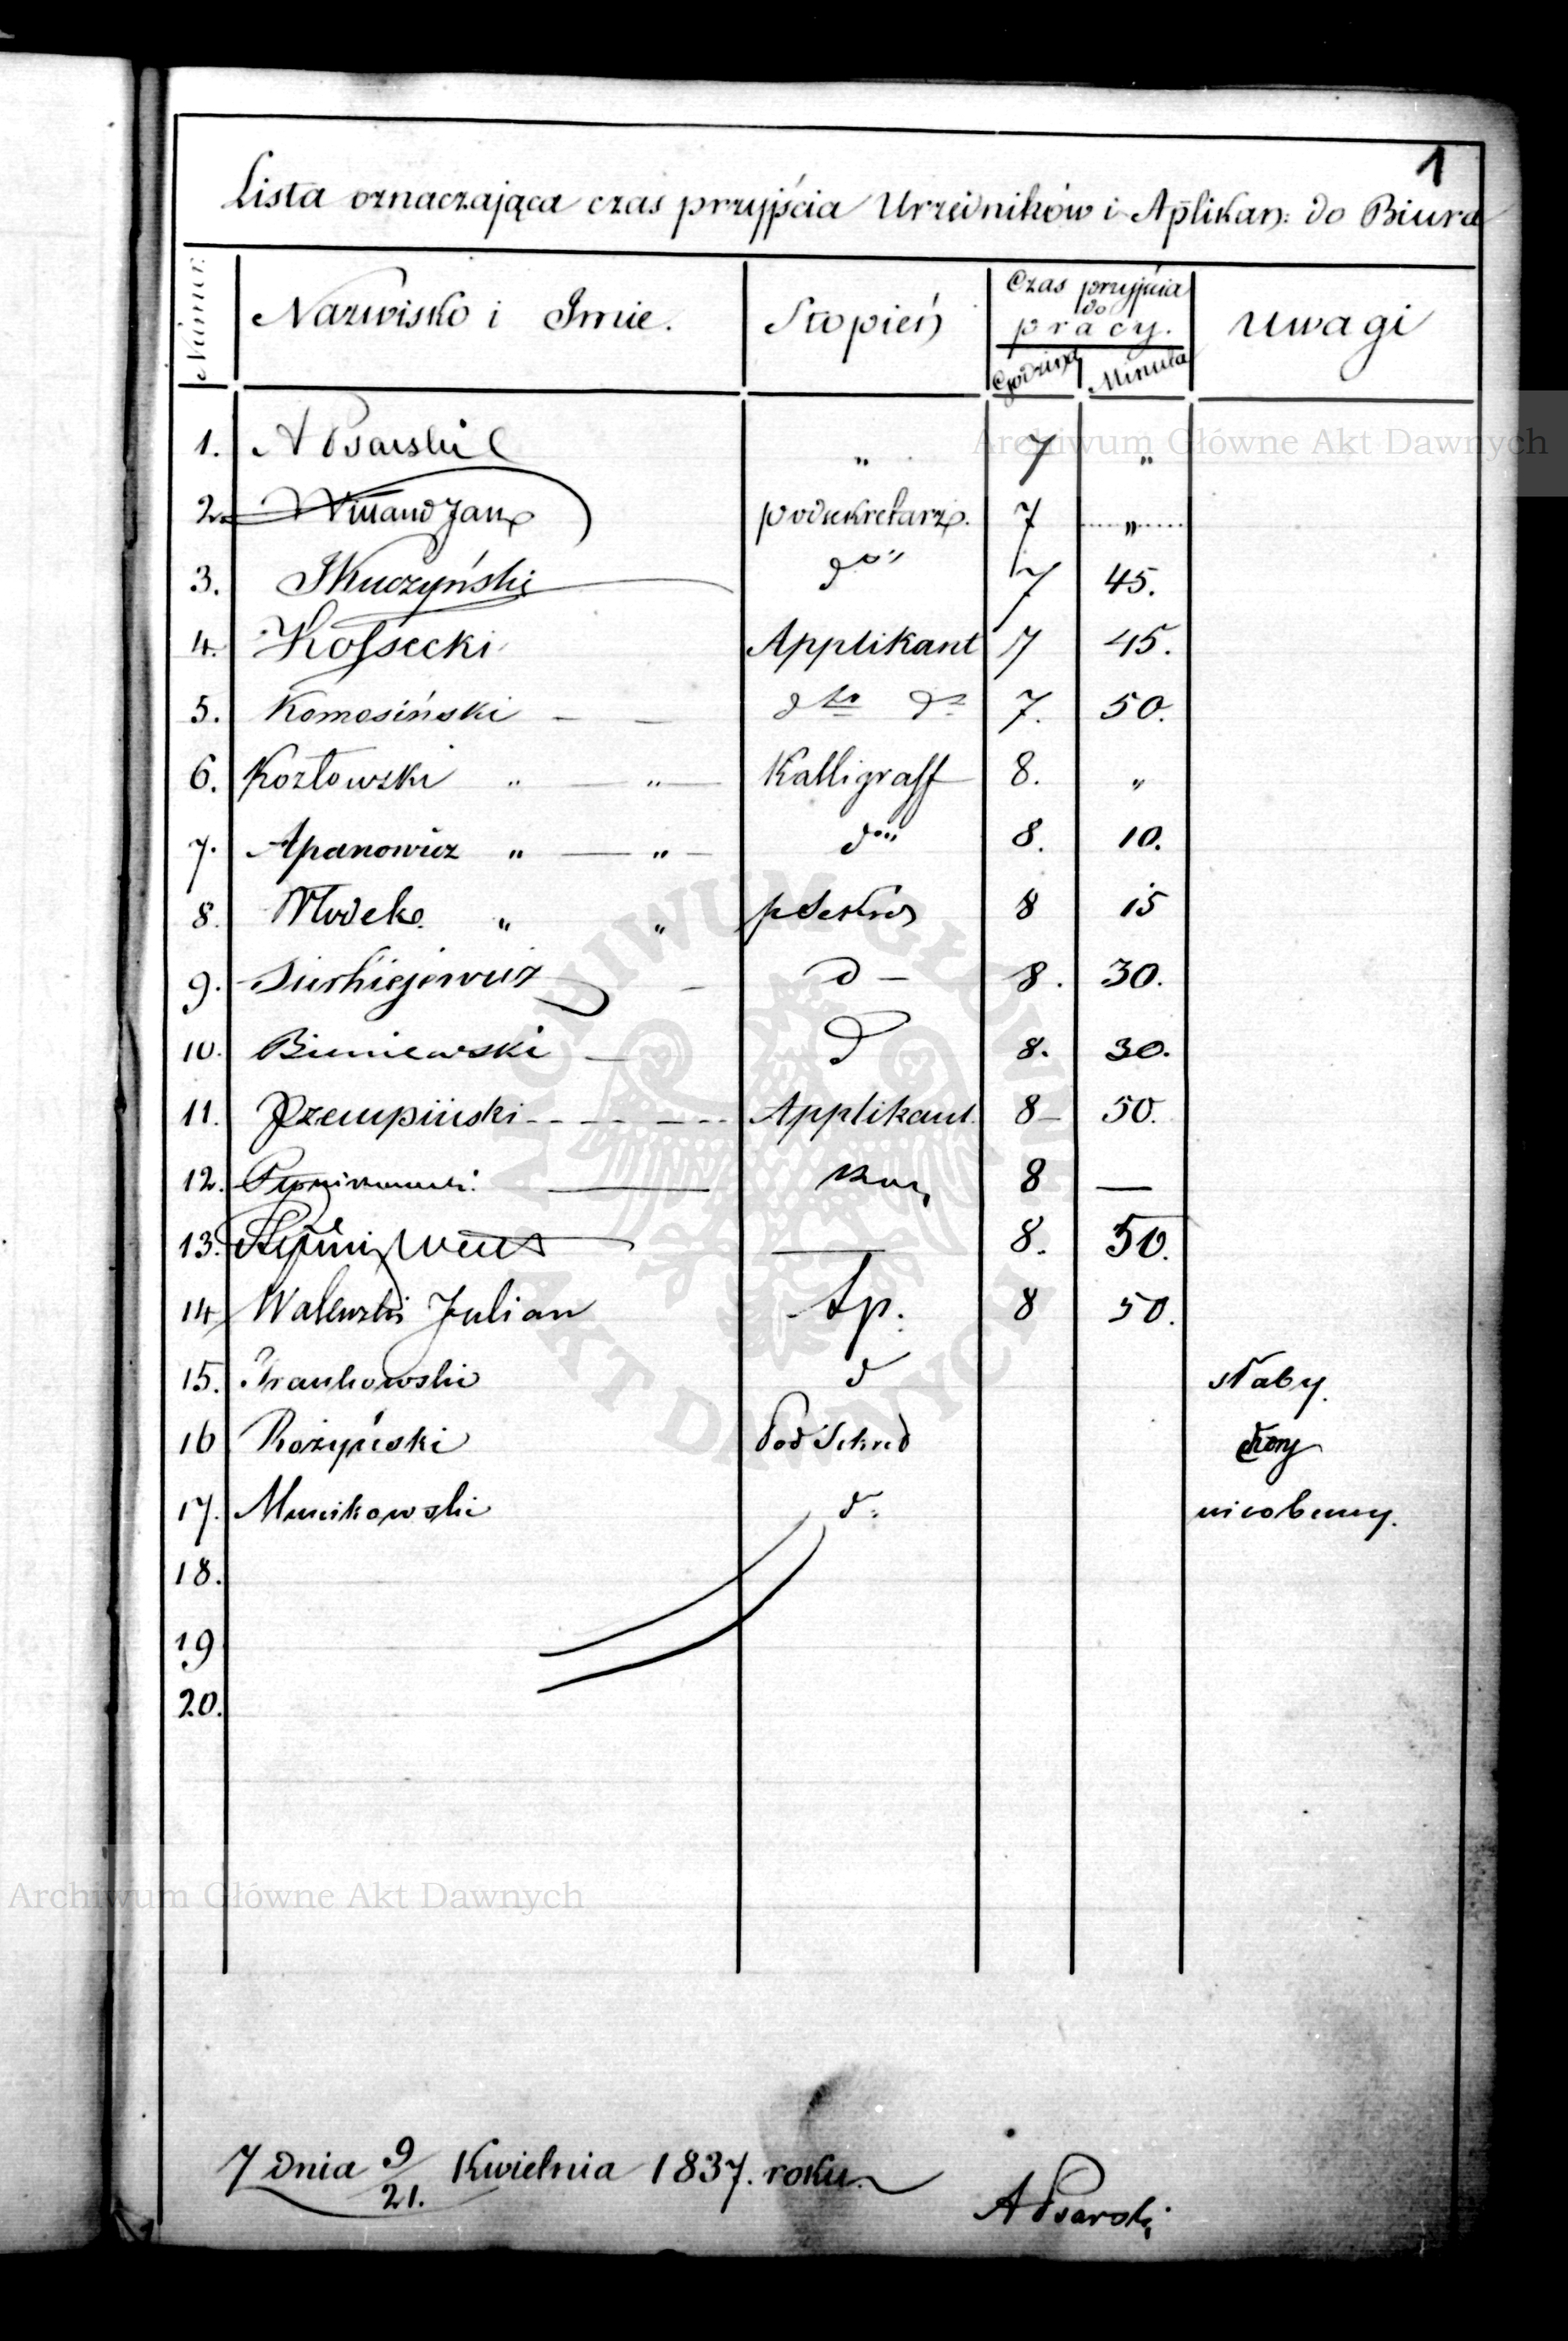 1
Lista oznaczająca czas przyjścia Urzędników i Aplikan: do Biura
Numer Nazwisko i Imie. Stopień Czas przyjścia do pracy. Godzina Minuta Uwagi
1. A Psarski „ 7 „
2. Jan podsekretarz. 7 „
3. JKuczyński do „ 7 45.
4. Kossecki Applikant 7 45.
5. Komosiński — — dto do 7. 50.
6. Kozłowski „ — „ — Kalligraff 8. „
7. Apanowicz „ — „ — do „ 8. 10.
8. Młodeko. „ „ 8 15
9. — d — 8. 30.
10. Bieniewski — d 8. 30.
11. Przempiński - - - - - Applikant 8 — 50.
12. — 8 —
13. — 8. 50.
14 Walewski Julian Ap. 8 50.
15. Frankowski d słaby.
16 Rożyński Pod Sekred chory
17. d: nieobecny.
18.
19
20.
7 Dnia 9/21. Kwietnia 1837. roku
A Psarski
Archiwum Główne Akt Dawnych
Archiwum Główne Akt Dawnych
ARCHIWUM GŁÓWNE AKT DAWNYCH